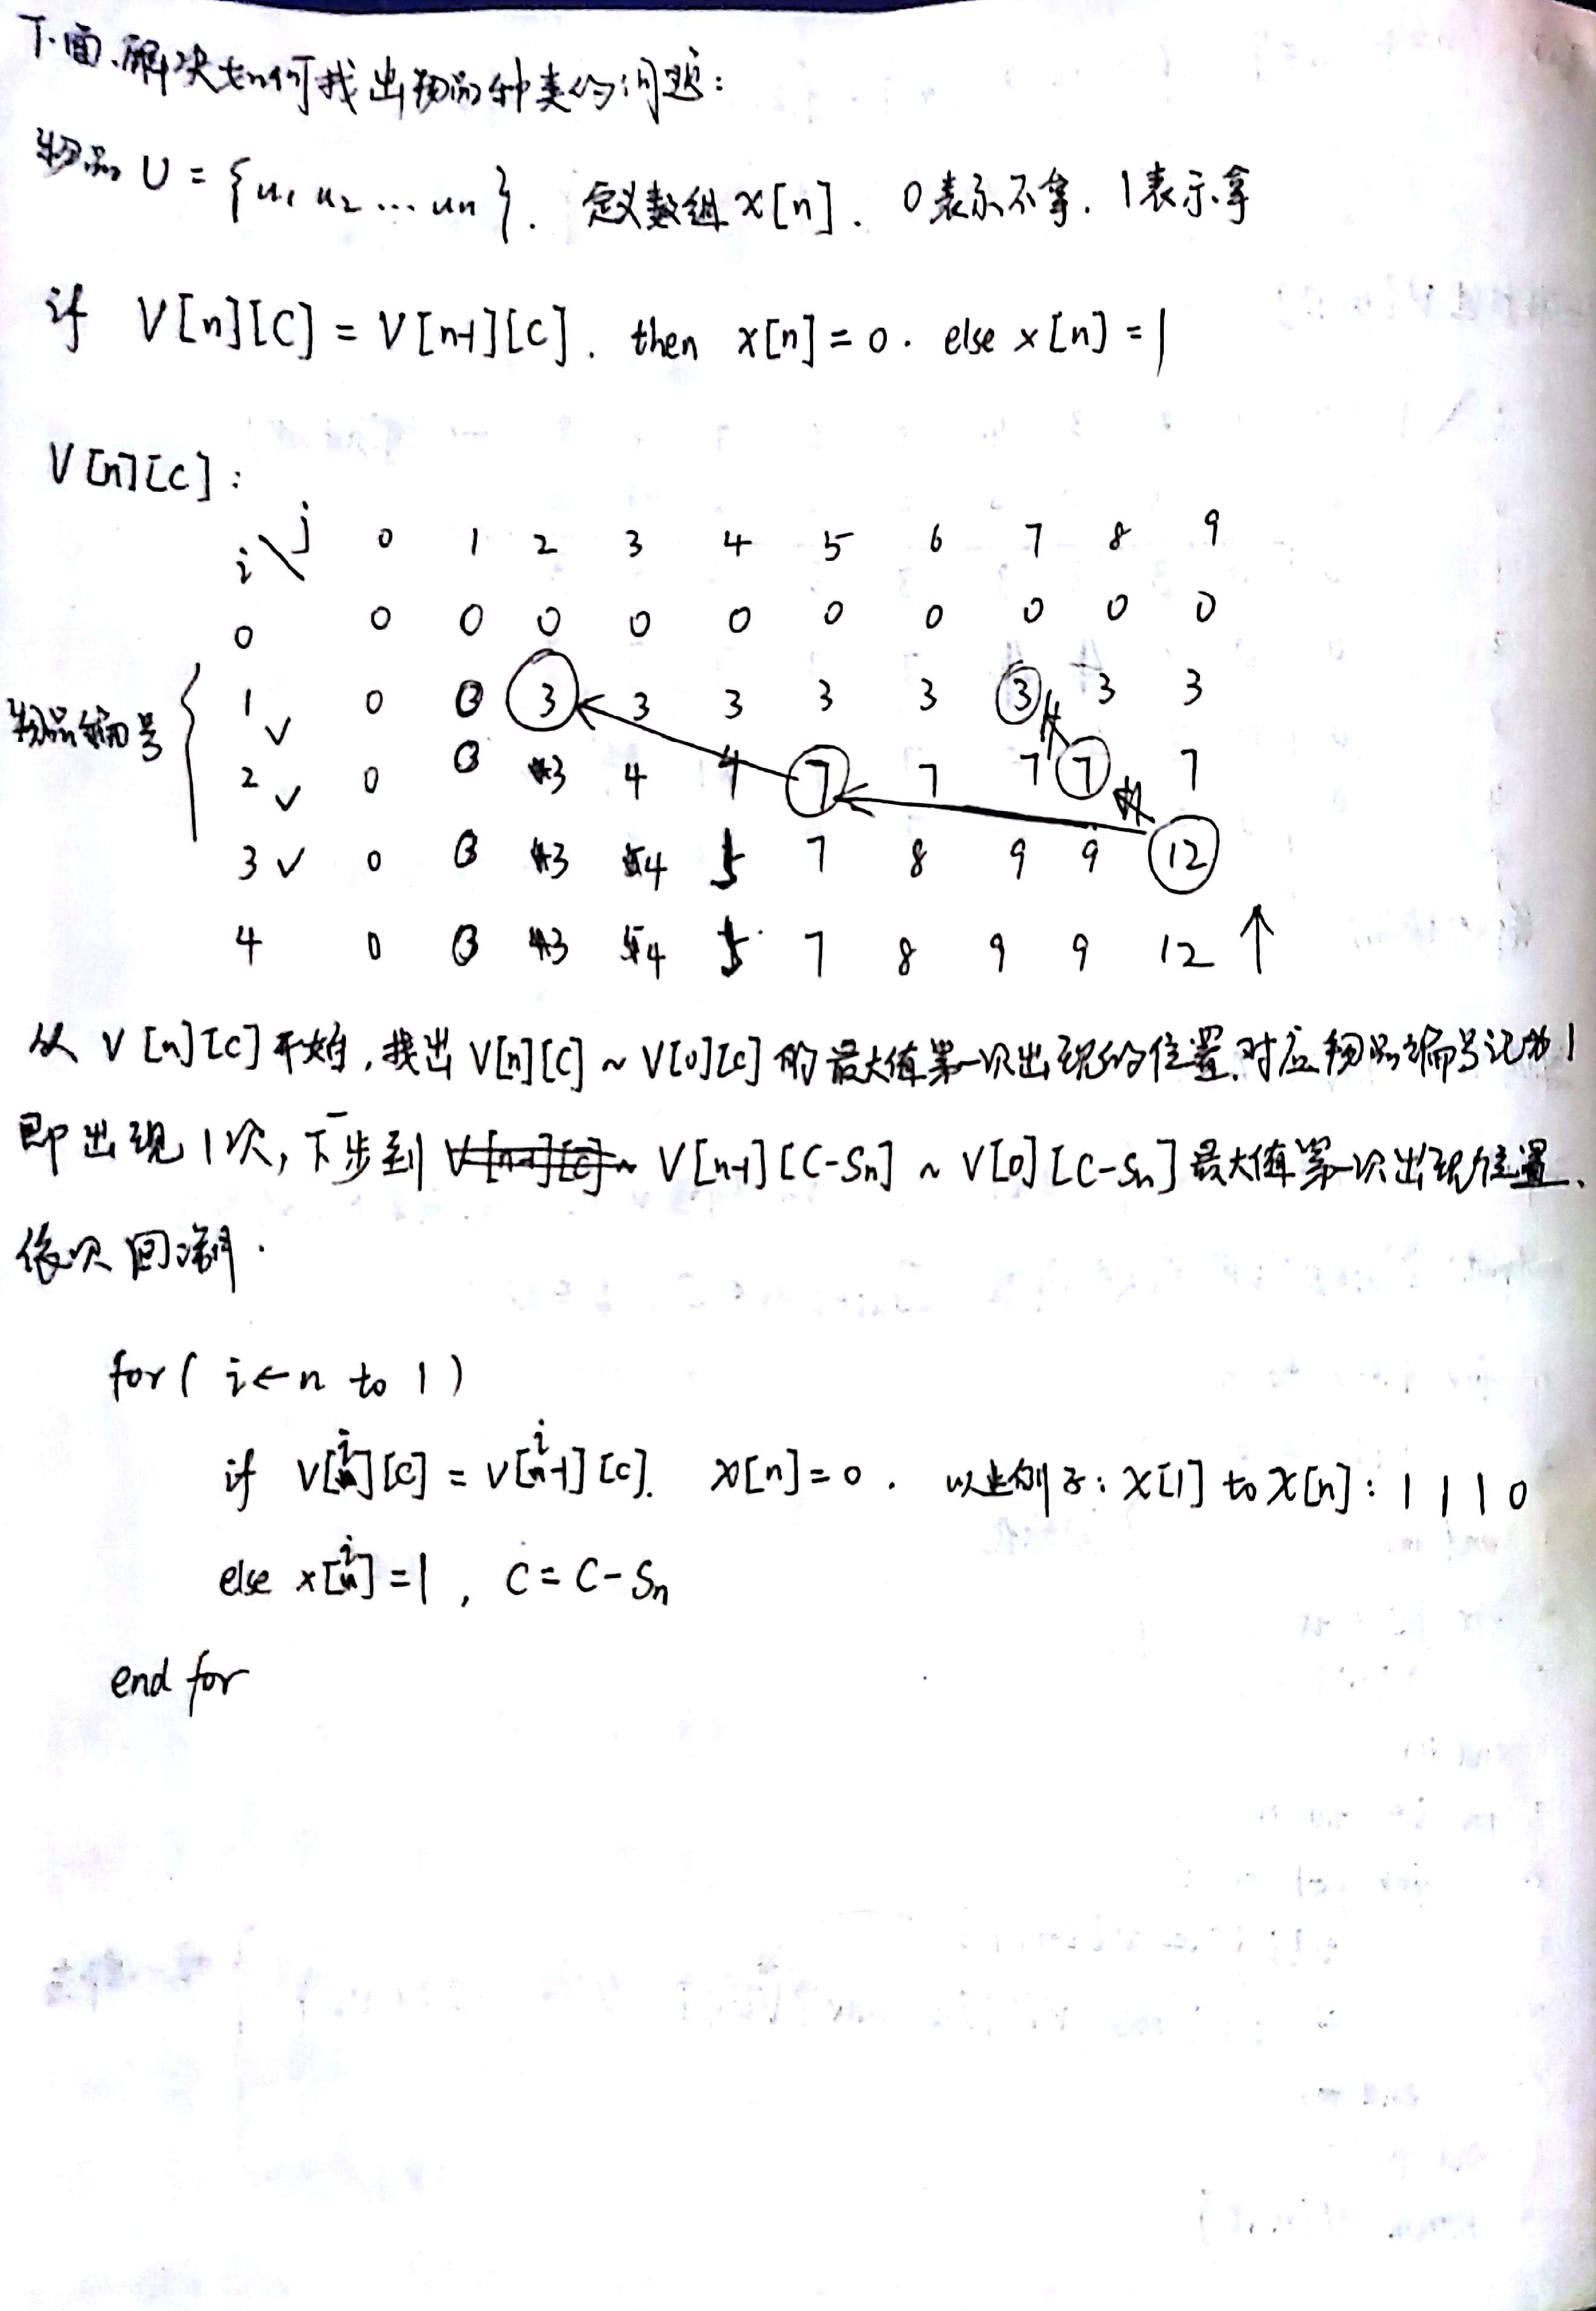 下面解决如何找出物品种类的问题:
物品 U = {u1 u2 ... un}. 定义数组 x[n]. 0表示不拿. 1表示拿
if V[n][C] = V[n-1][C]. then x[n] = 0. else x[n] = 1
V[n][C]:
i\j 0 1 2 3 4 5 6 7 8 9
0 0 0 0 0 0 0 0 0 0 0
物品编号 { 1 ✓ 0 0 3 3 3 3 3 3 3 3
2 ✓ 0 0 3 4 4 7 7 7 7 7
3 ✓ 0 0 3 4 5 7 8 9 9 12
4 0 0 3 4 5 7 8 9 9 12 ↑
从 V[n][C] 开始, 找出 V[n][C] ~ V[0][C] 的最大值第一次出现的位置. 对应物品编号记为1
即出现1次, 下一步到 V[n-1][C-Sn] ~ V[0][C-Sn] 最大值第一次出现位置.
依次回溯.
for( i ← n to 1 )
if V[i][C] = V[i-1][C]. x[n] = 0. 以上例子: x[1] to x[n]: 1 1 1 0
else x[i] = 1, C = C - Sn
end for